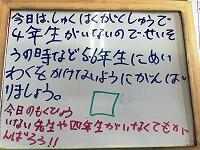 今日は、しゅくはくがくしゅうで
4年生がいないのでせいそ
うの時などろ6年生にめい
わくをかけないようにがんば
りましょう。
今日のもくひょう
いない先生や四年生がいなくてもが
んばろう!!